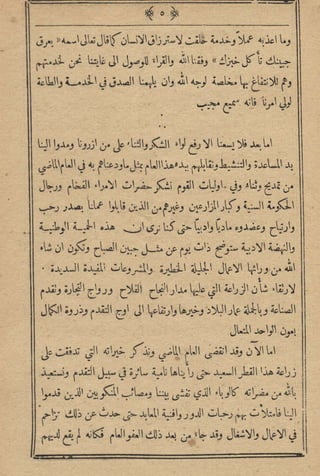 ﴿ ٥ ﴾
وما اعذبه عملاً وخدمة خلقت لاسترزاق الانسان كما قال تعالى اسمه « بعرق
جبينك تأكل خبزك » وفقنا الله والقراء للوصول الى غايتنا نحن لخدمتهم
وهم للانتفاع بها مخلصة لوجه الله وان يلهمنا الصدق في الخدمة والطاعة
لولي امرنا فانه سميع مجيب
اما بعد فلا يسعنا الا رفع لواء الشكر والثناء على من ازرونا ومدوا الينا
يد المساعدة والتنشيط ونقابلهم ببدء هذا العام بمثل ما ودعناهم به في العام الماضي
من تمديح وثناء وفي اوليات القوم نشكر حضرات الامراء الفخام ورجال
الحكومة السنية وكبار المزارعين وغيرهم من الذين قابلوا عملنا بصدر رحب
وارتياح وعضدوه مادياً وادبياً حتى كنا نرى ان هذه الخمية الوطنية
والنهضة الادبية ستوضح ذات يوم عن مثل جبين الصباح وتكون ان شاء
الله من ورائها الاعمال الجليلة الخطيرة والمشروعات المفيدة السديدة
لارتقاء شأن الزراعة التي عليها مدار النجاح الفلاح ورواج التجارة وتقدم
الصناعة وبالجملة عمار البلاد وخيرها وارتفاعها الى اوج التقدم وذروة الكمال
بعون الواحد المتعال
اما الآن وقد انقضى العام الماضي ونذكر خيراته التي تدفقت على
زراعة هذا القطر السعيد حتى رأيناها نامية سائرة في سبيل التقدم ونستعيذ
بالله من مضراته كالوباء الذي تفشى بيننا ومصائب المنكوبين الذين قدموا
الينا فامتلأت بهم رحبات الدور وافنية المعابد حتى حدث عن ذلك تزاحم
في الاعمال والاشغال وقد جاء من بعد ذلك العفو العام فكانه لم يقع لديهم